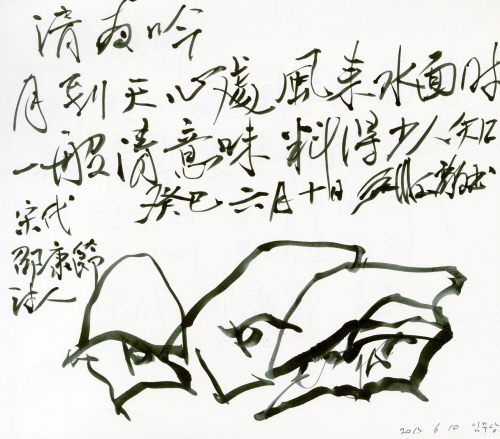 清夜吟
月到天心處風来水面时
一般清意味料得少人知
癸巳六月十日
宋代
邵康節
诗人
2013 6 10 임무상